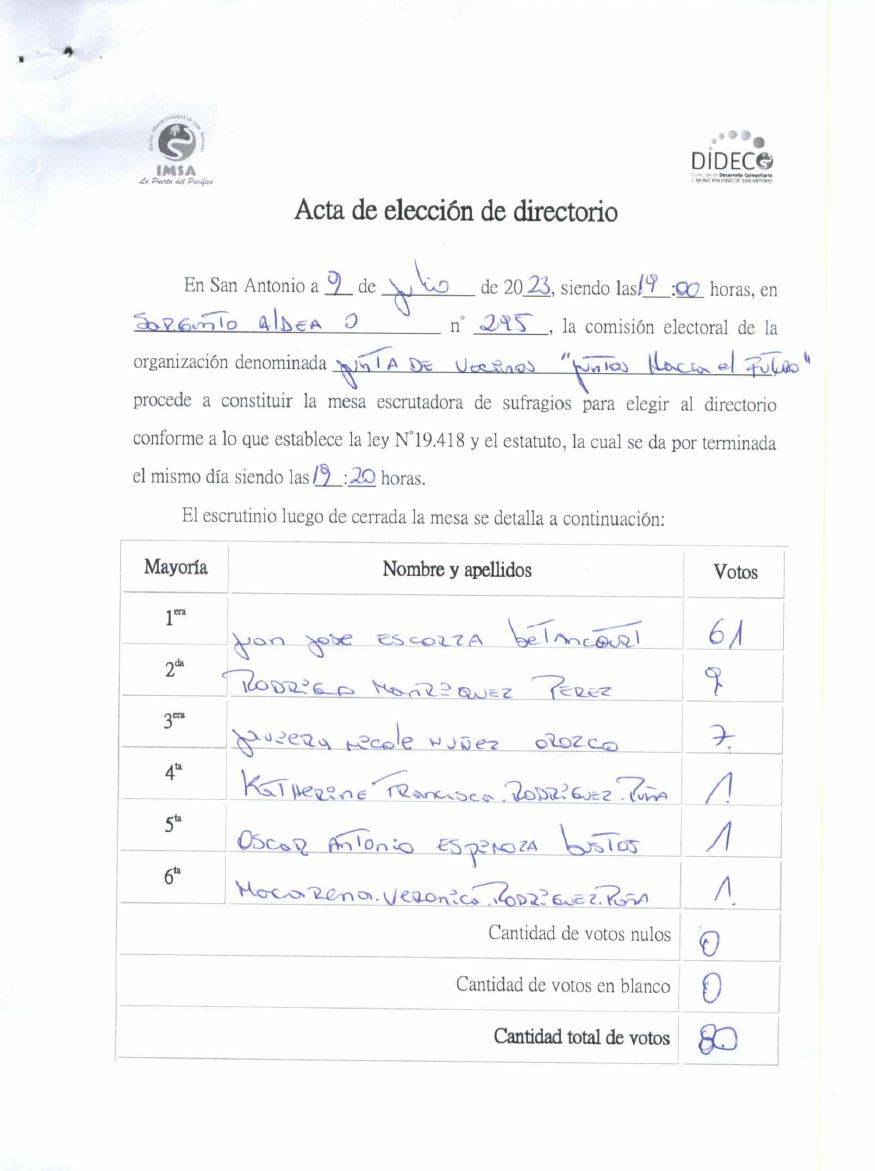 IMSA
La Puerta del Pacífico
DIDECO
Dirección de Desarrollo Comunitario
I. MUNICIPALIDAD DE SAN ANTONIO
Acta de elección de directorio
En San Antonio a 9 de Julio de 2023, siendo las 19:00 horas, en
SARGENTO ALDEA n° 295, la comisión electoral de la
organización denominada JUNTA DE VECINOS "JUNTOS Hacia el FUTURO"
procede a constituir la mesa escrutadora de sufragios para elegir al directorio
conforme a lo que establece la ley N°19.418 y el estatuto, la cual se da por terminada
el mismo día siendo las 19:20 horas.
El escrutinio luego de cerrada la mesa se detalla a continuación:
Mayoría Nombre y apellidos Votos
1era Juan José ESCOZZA BETANCOURT 61
2da RODRIGO MANRIQUEZ PEREZ 9
3era JAVIERA NICOLE NUÑEZ OROZCO 7.
4ta KATHERINE FRANCISCA.RODRIGUEZ.PUÑA 1
5ta OSCAR ANTONIO ESPINOZA BUSTOS 1
6ta MACARENA.VERONICA.RODRIGUEZ.PUÑA 1.
Cantidad de votos nulos 0
Cantidad de votos en blanco 0
Cantidad total de votos 80